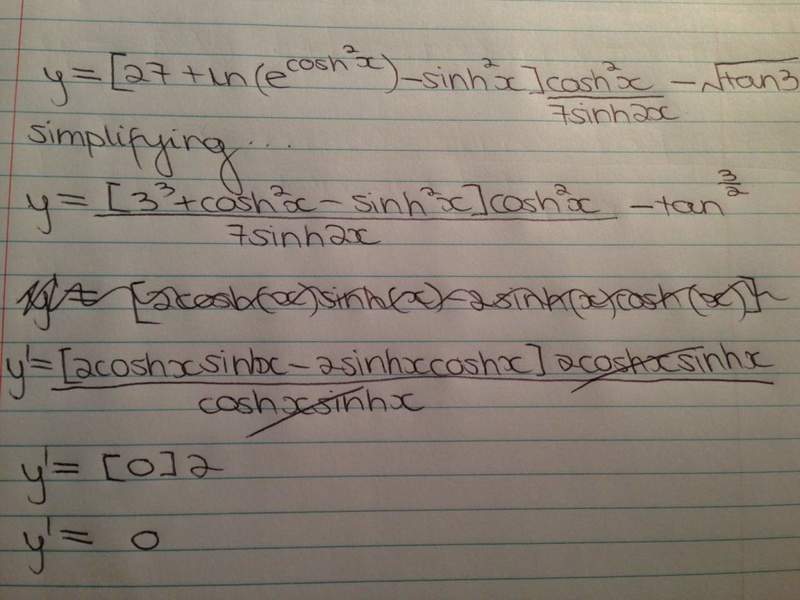 y = [27 + ln(e^{cosh²x}) - sinh²x] cosh²x / 7sinh2x - √tan3
simplifying...
y = [3³ + cosh²x - sinh²x] cosh²x / 7sinh2x - tan^{3/2}
y' = [2cosh(x)sinh(x) - 2sinh(x)cosh(x)]
y' = [2coshxsinhx - 2sinhxcoshx] 2coshxsinhx / coshxsinhx
y' = [0]2
y' = 0